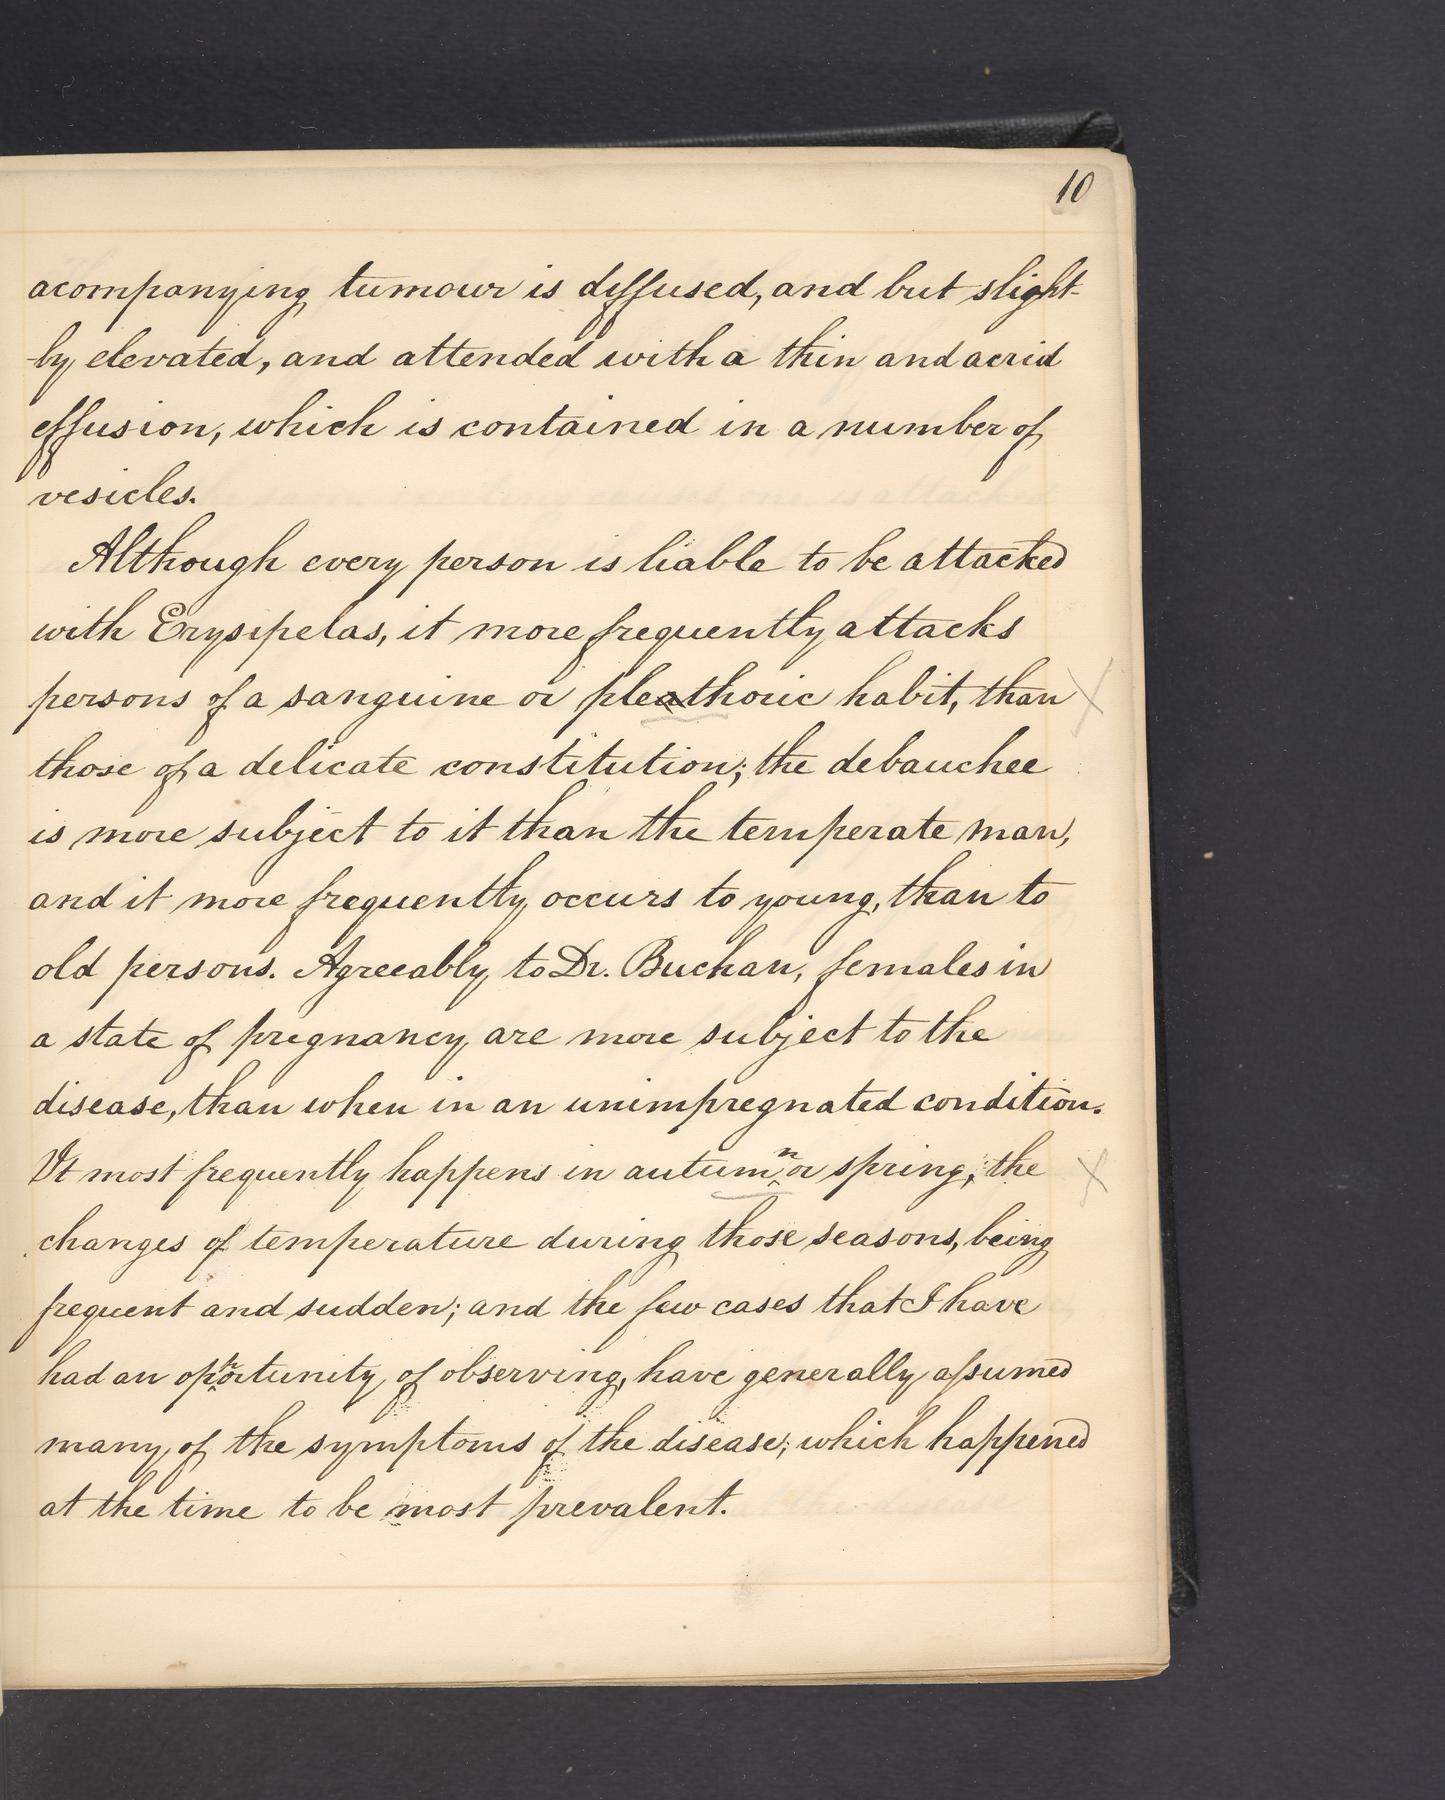 10
acompanying tumour is diffused, and but slight-
-ly elevated, and attended with a thin and acrid
effusion, which is contained in a number of
vesicles.
Although every person is liable to be attacked
with Erysipelas, it more frequently attacks
persons of a sanguine or pleathoric habit, than
those of a delicate constitution; the debauchee
is more subject to it than the temperate man,
and it more frequently occurs to young, than to
old persons. Agreeably to Dr. Buchan, females in
a state of pregnancy are more subject to the
disease, than when in an unimpregnated condition.
It most frequently happens in autumn or spring; the
changes of temperature during those seasons, being
frequent and sudden; and the few cases that I have
had an opportunity of observing, have generally assumed
many of the symptoms of the disease; which happened
at the time to be most prevalent.